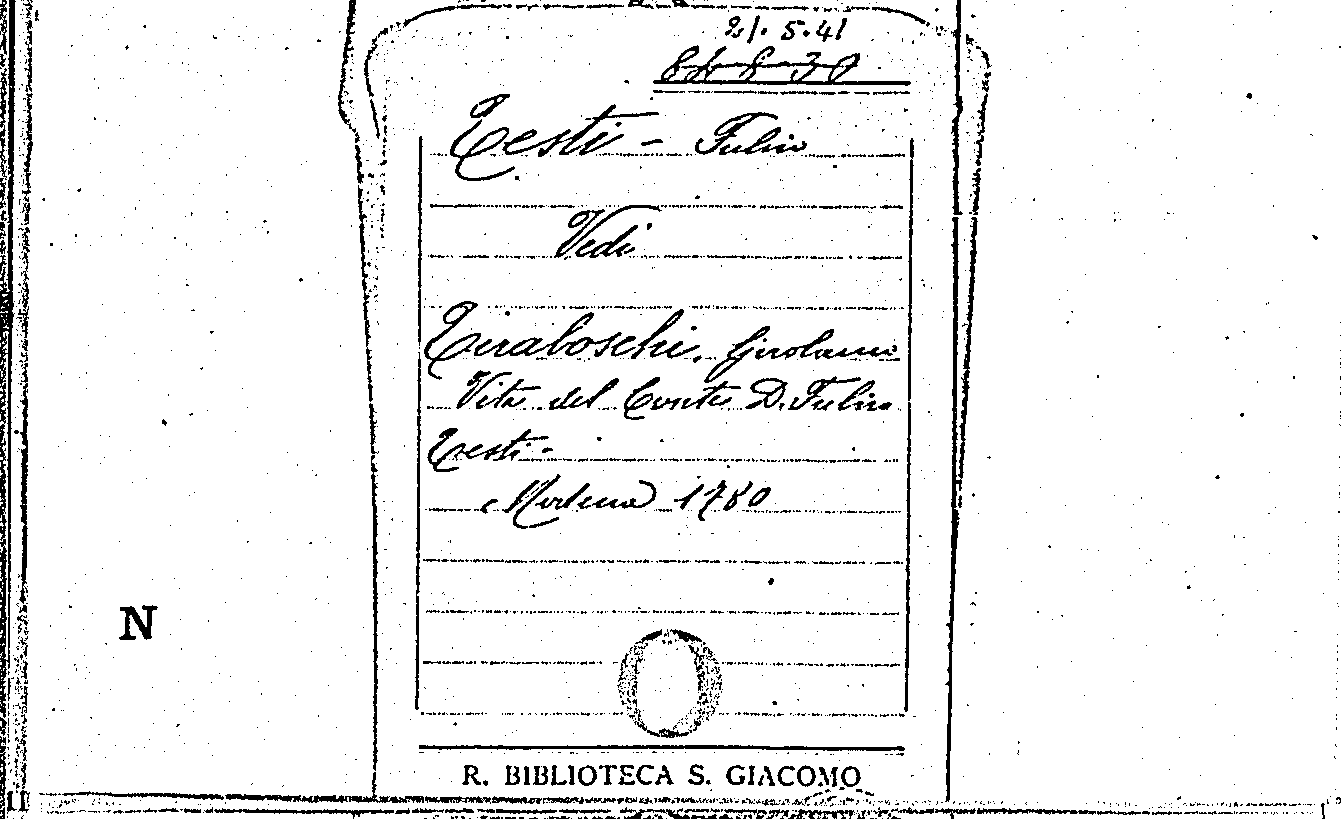 21. 5. 41
84-8-30
Testi - Fulvio
Vedi
Tiraboschi, Girolamo
Vita del Conte D. Fulvio
Testi -
Modena 1780
N
R. BIBLIOTECA S. GIACOMO